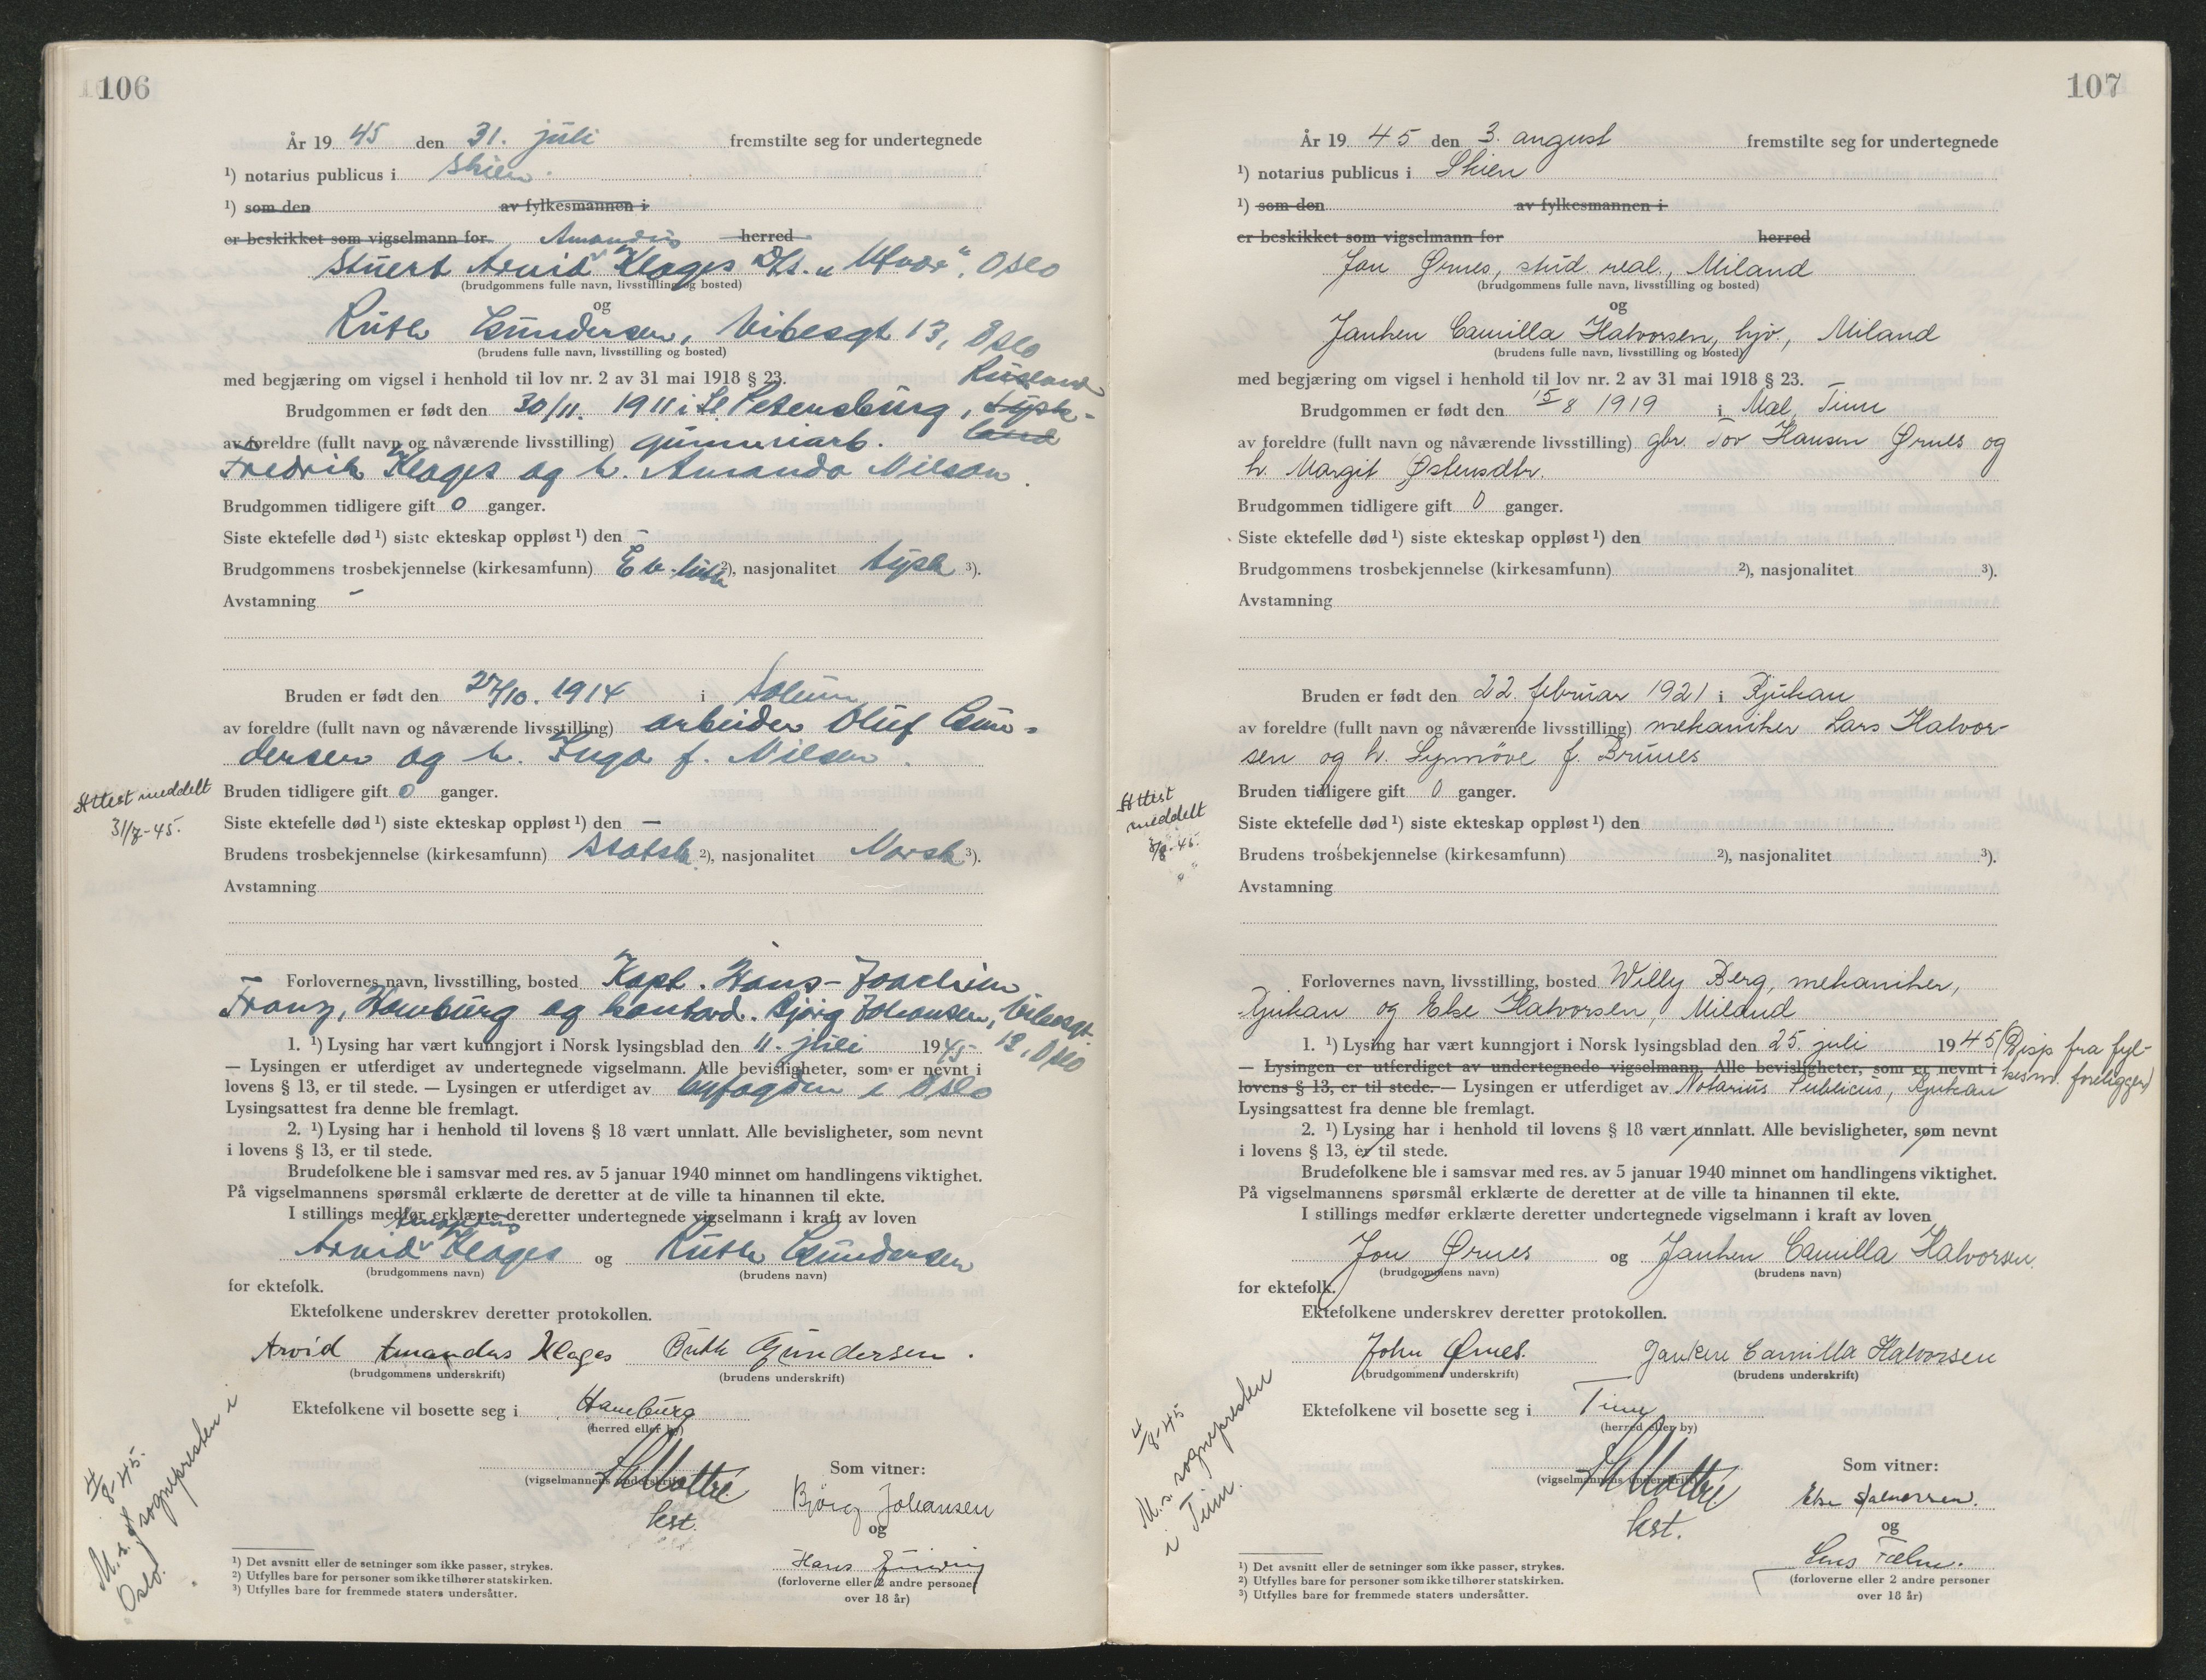 106
År 19 45 den 31. juli fremstilte seg for undertegnede
¹) notarius publicus i Skien.
¹) som den av fylkesmannen i
er beskikket som vigselmann for Amandus herred
Stuert Arvid Klages D/s. "Ufvær", Oslo
(brudgommens fulle navn, livsstilling og bosted)
og
Ruth Gundersen, Vibesgt 13, Oslo
(brudens fulle navn, livsstilling og bosted)
Rusland
med begjæring om vigsel i henhold til lov nr. 2 av 31 mai 1918 § 23.
Brudgommen er født den 30/11. 1911 i St Petersburg, Tysk-
av foreldre (fullt navn og nåværende livsstilling) gummiarb. land
Fredrik Klages og h. Amanda Nilson.
Brudgommen tidligere gift 0 ganger.
Siste ektefelle død ¹) siste ekteskap oppløst ¹) den –
Brudgommens trosbekjennelse (kirkesamfunn) Ev-luth ²), nasjonalitet tysk ³).
Avstamning –
Bruden er født den 27/10. 1914 i Solum
av foreldre (fullt navn og nåværende livsstilling) arbeider Oluf Gun-
dersen og h. Inga f. Nilsen.
Attest meddelt
31/7-45.
Bruden tidligere gift 0 ganger.
Siste ektefelle død ¹) siste ekteskap oppløst ¹) den —
Brudens trosbekjennelse (kirkesamfunn) Statsk. ²), nasjonalitet Norsk ³).
Avstamning
Forlovernes navn, livsstilling, bosted Kapt. Hans-Joachim
Franz, Hamburg og kontord. Bjørg Johansen, Vibesgt.
13, Oslo
1. ¹) Lysing har vært kunngjort i Norsk lysingsblad den 11. juli 1945
— Lysingen er utferdiget av undertegnede vigselmann. Alle bevisligheter, som er nevnt i
lovens § 13, er til stede. — Lysingen er utferdiget av byfogden i Oslo
Lysingsattest fra denne ble fremlagt.
2. ¹) Lysing har i henhold til lovens § 18 vært unnlatt. Alle bevisligheter, som nevnt
i lovens § 13, er til stede.
Brudefolkene ble i samsvar med res. av 5 januar 1940 minnet om handlingens viktighet.
På vigselmannens spørsmål erklærte de deretter at de ville ta hinannen til ekte.
I stillings medfør erklærte deretter undertegnede vigselmann i kraft av loven
Amandus
Arvid Klages og Ruth Gundersen
(brudgommens navn) (brudens navn)
for ektefolk.
Ektefolkene underskrev deretter protokollen.
Arvid Amandus Klages Ruth Gundersen.
(brudgommens underskrift) (brudens underskrift)
Ektefolkene vil bosette seg i Hamburg
(herred eller by)
Som vitner:
(vigselmannens underskrift)
kst.
Bjørg Johansen
og
Hans
(forloverne eller 2 andre personer
over 18 år)
4/8-45.
M. s. t. sognepresten i
Oslo.
¹) Det avsnitt eller de setninger som ikke passer, strykes.
²) Utfylles bare for personer som ikke tilhører statskirken.
³) Utfylles bare for fremmede staters undersåtter.
107
År 19 45 den 3. august fremstilte seg for undertegnede
¹) notarius publicus i Skien
¹) som den av fylkesmannen i
er beskikket som vigselmann for herred
Jon Ørnes, stud. real., Miland
(brudgommens fulle navn, livsstilling og bosted)
og
Janken Camilla Halvorsen, hjv., Miland
(brudens fulle navn, livsstilling og bosted)
med begjæring om vigsel i henhold til lov nr. 2 av 31 mai 1918 § 23.
Brudgommen er født den 15/8 1919 i Mæl, Tinn
av foreldre (fullt navn og nåværende livsstilling) gbr. Tov Hansen Ørnes og
h. Margit Østensdtr.
Brudgommen tidligere gift 0 ganger.
Siste ektefelle død ¹) siste ekteskap oppløst ¹) den
Brudgommens trosbekjennelse (kirkesamfunn) ²), nasjonalitet ³).
Avstamning
Bruden er født den 22. februar 1921 i Rjukan
av foreldre (fullt navn og nåværende livsstilling) mekaniker Lars Halvor-
sen og h. Synnöve f. Brunes
Attest
meddelt
3/8-45.
Bruden tidligere gift 0 ganger.
Siste ektefelle død ¹) siste ekteskap oppløst ¹) den
Brudens trosbekjennelse (kirkesamfunn) ²), nasjonalitet ³).
Avstamning
Forlovernes navn, livsstilling, bosted Willy Berg, mekaniker,
Rjukan og Else Halvorsen, Miland
1. ¹) Lysing har vært kunngjort i Norsk lysingsblad den 25. juli 1945 (Disp fra fyl-
kesm. foreligger)
— Lysingen er utferdiget av undertegnede vigselmann. Alle bevisligheter, som er nevnt i
lovens § 13, er til stede. — Lysingen er utferdiget av Notarius Publicus, Rjukan
Lysingsattest fra denne ble fremlagt.
2. ¹) Lysing har i henhold til lovens § 18 vært unnlatt. Alle bevisligheter, som nevnt
i lovens § 13, er til stede.
Brudefolkene ble i samsvar med res. av 5 januar 1940 minnet om handlingens viktighet.
På vigselmannens spørsmål erklærte de deretter at de ville ta hinannen til ekte.
I stillings medfør erklærte deretter undertegnede vigselmann i kraft av loven
Jon Ørnes og Janken Camilla Halvorsen.
(brudgommens navn) (brudens navn)
for ektefolk.
Ektefolkene underskrev deretter protokollen.
John Ørnes. Janken Camilla Halvorsen
(brudgommens underskrift) (brudens underskrift)
Ektefolkene vil bosette seg i Tinn
(herred eller by)
Som vitner:
(vigselmannens underskrift)
kst.
Else Halvorsen.
og
(forloverne eller 2 andre personer
over 18 år)
4/8-45
M. s. sognepresten
i Tinn.
¹) Det avsnitt eller de setninger som ikke passer, strykes.
²) Utfylles bare for personer som ikke tilhører statskirken.
³) Utfylles bare for fremmede staters undersåtter.